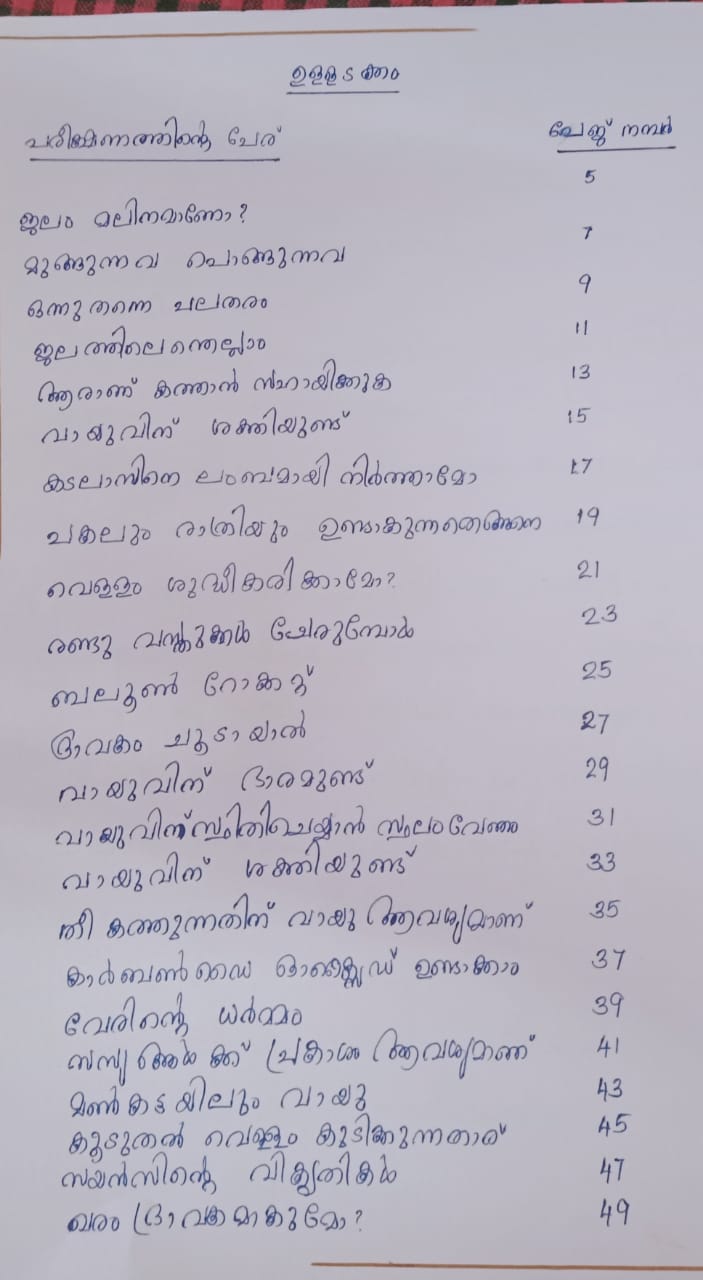 ഉള്ളടക്കം
പരീക്ഷണത്തിന്റെ പേര് പേജ് നമ്പർ
ജലം മലിനമാണോ? 5
മുങ്ങുന്നവ പൊങ്ങുന്നവ 7
ഒന്നുതന്നെ പലതരം 9
ജലത്തിലെന്തെല്ലാം 11
ആരാണ് കത്താൻ സഹായിക്കുക 13
വായുവിന് ശക്തിയുണ്ട് 15
കടലാസിനെ ലംബമായി നിർത്താമോ 17
പകലും രാത്രിയും ഉണ്ടാകുന്നതെങ്ങനെ 19
വെള്ളം ശുദ്ധീകരിക്കാമോ? 21
രണ്ടു വസ്തുക്കൾ ചേരുമ്പോൾ 23
ബലൂൺ റോക്കറ്റ് 25
ദ്രാവകം ചൂടായാൽ 27
വായുവിന് ഭാരമുണ്ട് 29
വായുവിന് സ്ഥിതിചെയ്യാൻ സ്ഥലം വേണം 31
വായുവിന് ശക്തിയുണ്ട് 33
തീ കത്തുന്നതിന് വായു ആവശ്യമാണ് 35
കാർബൺ ഡൈ ഓക്സൈഡ് ഉണ്ടാക്കാം 37
വേരിന്റെ ധർമ്മം 39
സസ്യങ്ങൾക്ക് പ്രകാശം ആവശ്യമാണ് 41
മൺകട്ടയിലും വായു 43
കൂടുതൽ വെള്ളം കുടിക്കുന്നതാര് 45
സയൻസിന്റെ വികൃതികൾ 47
ഖരം ദ്രാവകമാകുമോ? 49